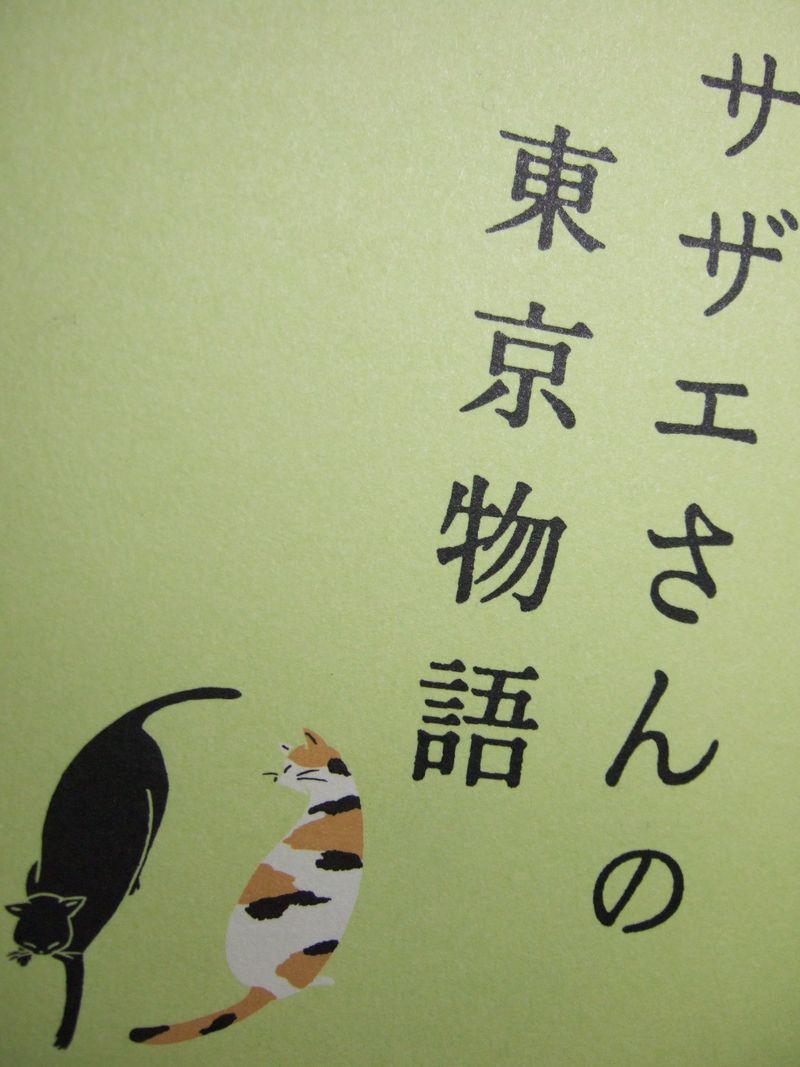 サザエさんの
東京物語